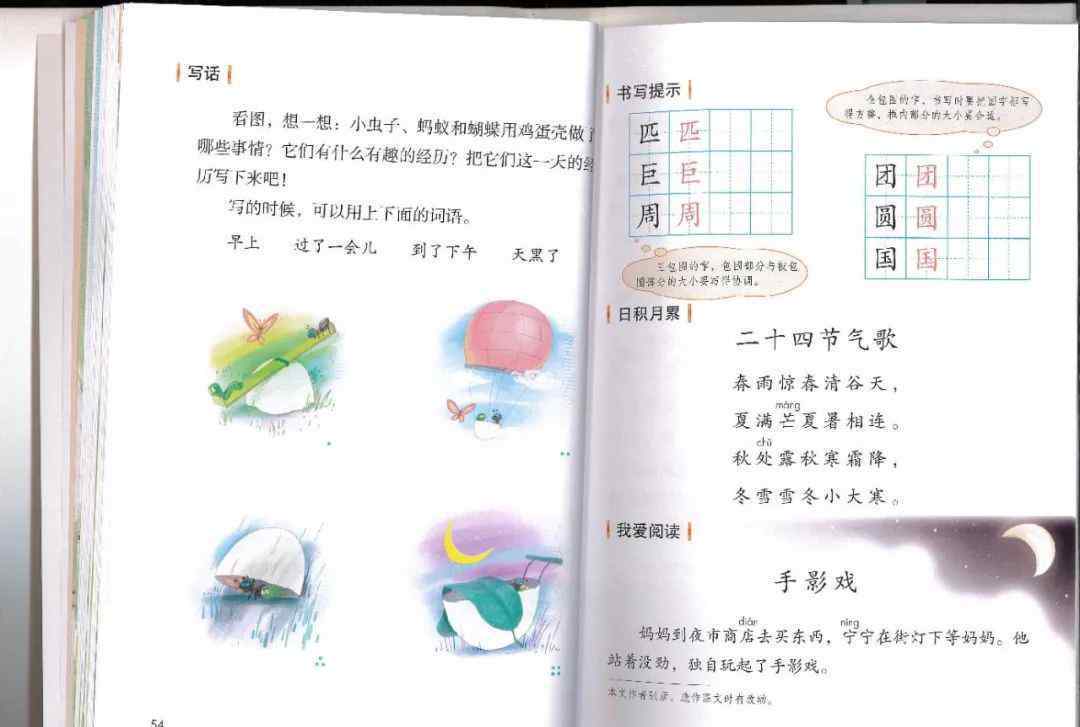 写话
看图，想一想：小虫子、蚂蚁和蝴蝶用鸡蛋壳做了
哪些事情？它们有什么有趣的经历？把它们这一天的经
历写下来吧！
写的时候，可以用上下面的词语。
早上 过了一会儿 到了下午 天黑了
54
书写提示
匹 匹
巨 巨
周 周
三包围的字，包围部分与被包
围部分的大小要写得协调。
全包围的字，书写时要把国字框写
得方正，框内部分的大小要合适。
团 团
圆 圆
国 国
日积月累
二十四节气歌
春雨惊春清谷天，
máng
夏满芒夏暑相连。
chǔ
秋处露秋寒霜降，
冬雪雪冬小大寒。
我爱阅读
手影戏
diàn níng
妈妈到夜市商店去买东西，宁宁在街灯下等妈妈。他
站着没劲，独自玩起了手影戏。
本文作者张彦，选作课文时有改动。